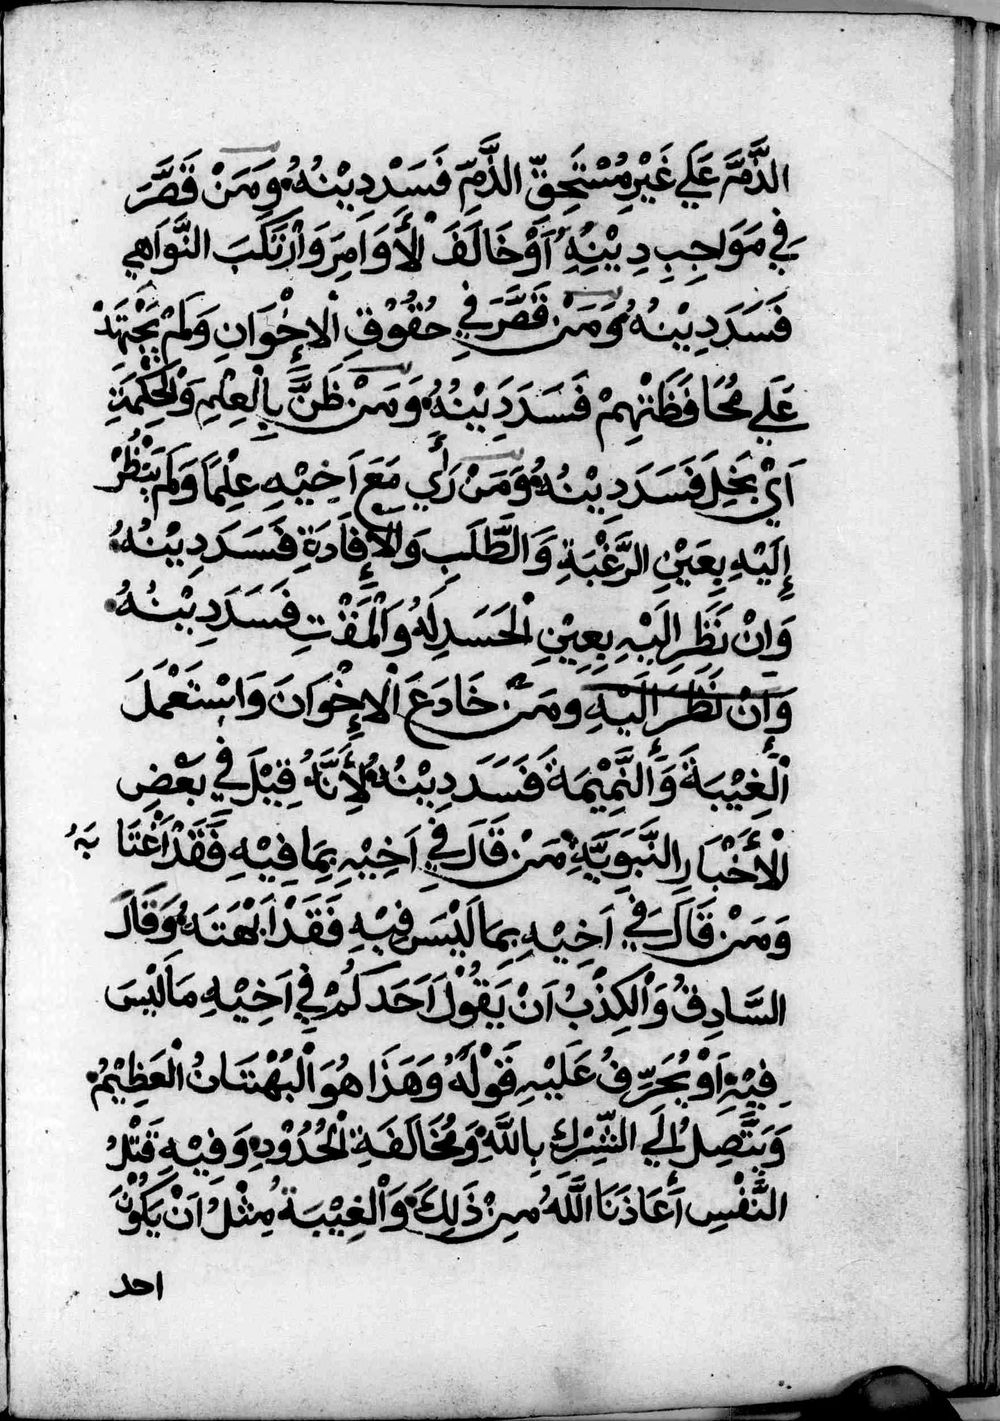 الذَّمَّ عَلَي غَيْرِ مُسْتَحِقِّ الذَّمِّ فَسَدْ دِيْنُهُ وَمَنْ قَصَّرَ
فِي مَوَاجِبِ دِيْنِهِ اَوْ خَالَفَ الْأَوَامِرَ وَارْتَكَبَ النَّوَاهِي
فَسَدَ دِيْنُهُ وَمَنْ قَصَّرَ فِي حُقُوْقِ الْاِخْوَانِ وَلَمْ يَجْتَهِدْ
عَلَي مُحَافَظَتِهِمْ فَسَدَ دِيْنُهُ وَمَنْ ظَنَّ بِالْعِلْمِ وَالْحِكْمَةِ
اَيْ بَخِلَ فَسَدَ دِيْنُهُ وَمَنْ رَأَي مَعَ اَخِيْهِ عِلْمًا وَلَمْ يَنْظُرْ
إِلَيْهِ بِعَيْنِ الرَّغْبَةِ وَالطَّلَبِ وَالْإِفَادَةِ فَسَدَ دِيْنُهُ
وَاِنْ نَظَرَ اِلَيْهِ بِعِيْنِ الْحَسَدِ لَهُ وَالْمَقْتِ فَسَدَ دِيْنُهُ
وَاِنْ نَظَرَ اِلَيْهِ وَمَنْ خَادَعَ الْاِخْوَانَ وَاسْتَعْمَلَ
الْغِيْبَةَ وَالنَّمِيْمَةَ فَسَدَ دِيْنُهُ لِأَنَّهُ قِيْلَ فِي بَعْضِ
الْأَخْبَارِ النَّبَوِيَّةِ مَنْ قَالَ فِي اَخِيْهِ بِمَا فِيْهِ فَقَدْ اَغْتَابَهُ
وَمَنْ قَالَ فِي اَخِيْهِ بِمَا لَيْسَ فِيْهِ فَقَدْ اَبْهَتَهُ وَقَالَ
السَّادِقُ وَالْكِذْبُ اَنْ يَقُوْلَ اَحَدَكُمْ فِي اَخِيْهِ مَا لَيْسَ
فِيْهِ اَوْ يُحَرِّفُ عَلَيْهِ قَوْلَهُ وَهَذَا هُوَ الْبُهْتَانُ الْعَظِيْمُ
وَيَتَّصِلُ اِلَي الشِّرْكِ بِاللَّهِ وَمُخَالَفَةِ الْحُدُوْدِ وَفِيْهِ قَتْلُ
النَّفْسِ اَعَاذَنَا اللَّهُ مِنْ ذَلِكَ وَالْغِيْبَةُ مِثْلُ اَنْ يَكُوْنَ
احد